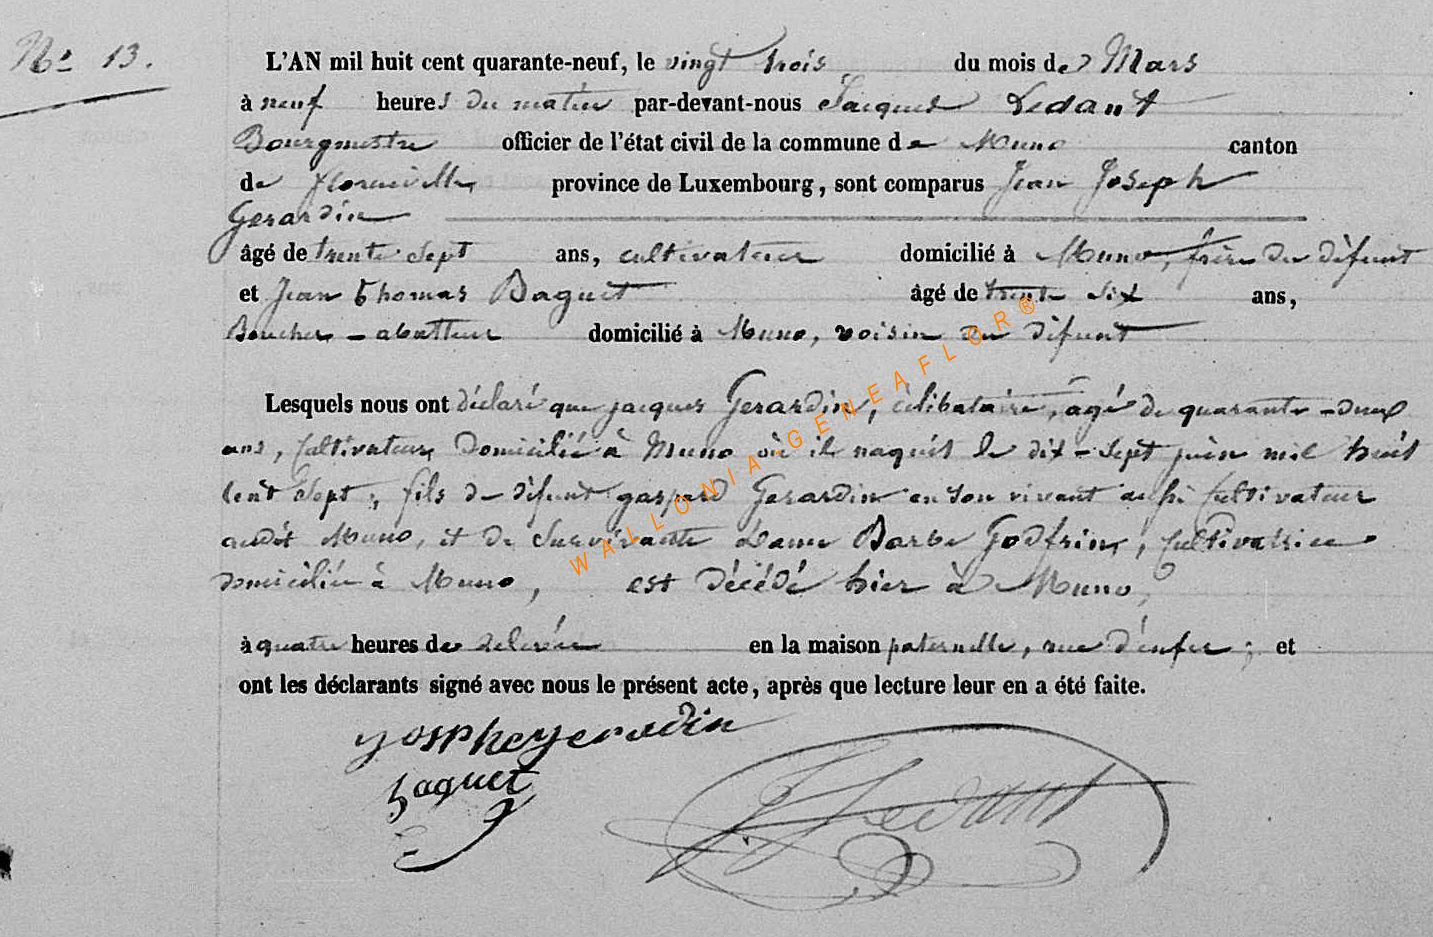 No 13.
L'AN mil huit cent quarante-neuf, le vingt trois du mois de Mars
à neuf heures du matin par-devant-nous Jacques Ledant
Bourgmestre officier de l'état civil de la commune de Muno canton
de florenville, province de Luxembourg, sont comparus Jean Joseph
Gerardin
âgé de trente sept ans, cultivateur domicilié à Muno, frère du défunt
et Jean thomas Baquet âgé de trente six ans,
Boucher - abatteur domicilié à Muno, voisin du défunt
Lesquels nous ont déclaré que jacques Gerardin, célibataire, agé de quarante-deux
ans, Cultivateur, Domicilié à Muno où il naquit le dix-sept juin mil huit
Cent Sept, fils de défunt gaspard Gerardin en son vivant aussi Cultivateur
audit Muno, et de Survivante Dame Barbe Godfrin, Cultivatrice
domiciliée à Muno, est décédé hier à Muno,
à quatre heures de relevée en la maison paternelle, rue d'enfer; et
ont les déclarants signé avec nous le présent acte, après que lecture leur en a été faite.
yosphe gerardin
baquet
J Ledant
WALLONIA-GENEAFLOR®